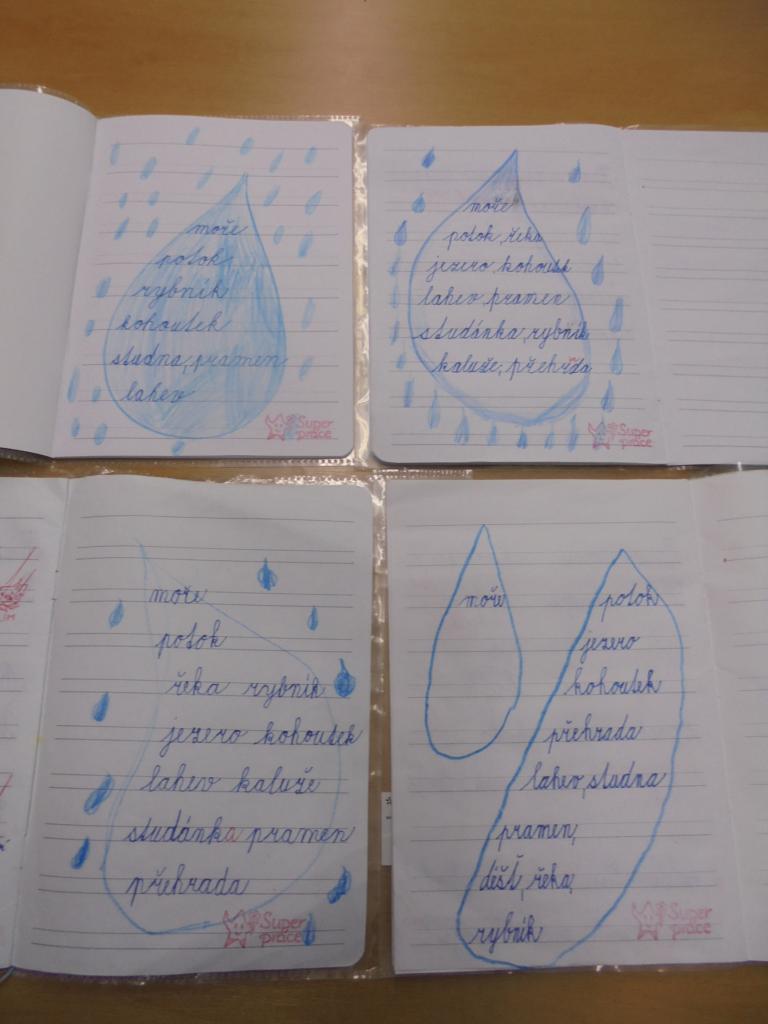 moře
potok
rybník
kohoutek
studna, pramen
lahev
Super
práce
moře
potok, řeka
jezero, kohoutek
lahev, pramen
studánka, rybník
kaluže, přehrada
Super
práce
moře
potok
řeka rybník
jezero kohoutek
lahev kaluže
studánka pramen
přehrada
Super
práce
moře
potok
jezero
kohoutek
přehrada
lahev, studna
pramen,
déšť, řeka,
rybník
Super
práce